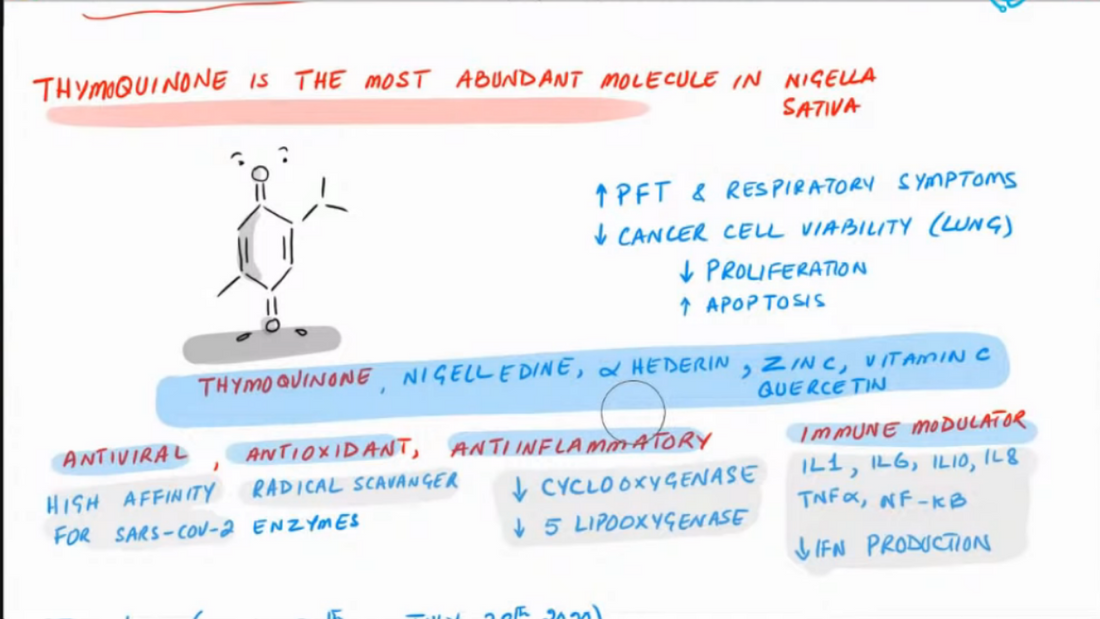 THYMOQUINONE IS THE MOST ABUNDANT MOLECULE IN NIGELLA
SATIVA
O
O
↑ PFT & RESPIRATORY SYMPTOMS
↓ CANCER CELL VIABILITY (LUNG)
↓ PROLIFERATION
↑ APOPTOSIS
THYMOQUINONE, NIGELLEDINE, α HEDERIN, ZINC, VITAMIN C
QUERCETIN
ANTIVIRAL, ANTIOXIDANT, ANTIINFLAMMATORY
HIGH AFFINITY
FOR SARS-COV-2
RADICAL SCAVANGER
ENZYMES
↓ CYCLOOXYGENASE
↓ 5 LIPOOXYGENASE
IMMUNE MODULATOR
IL1, IL6, IL10, IL8
TNFα, NF-KB
↓ IFN PRODUCTION